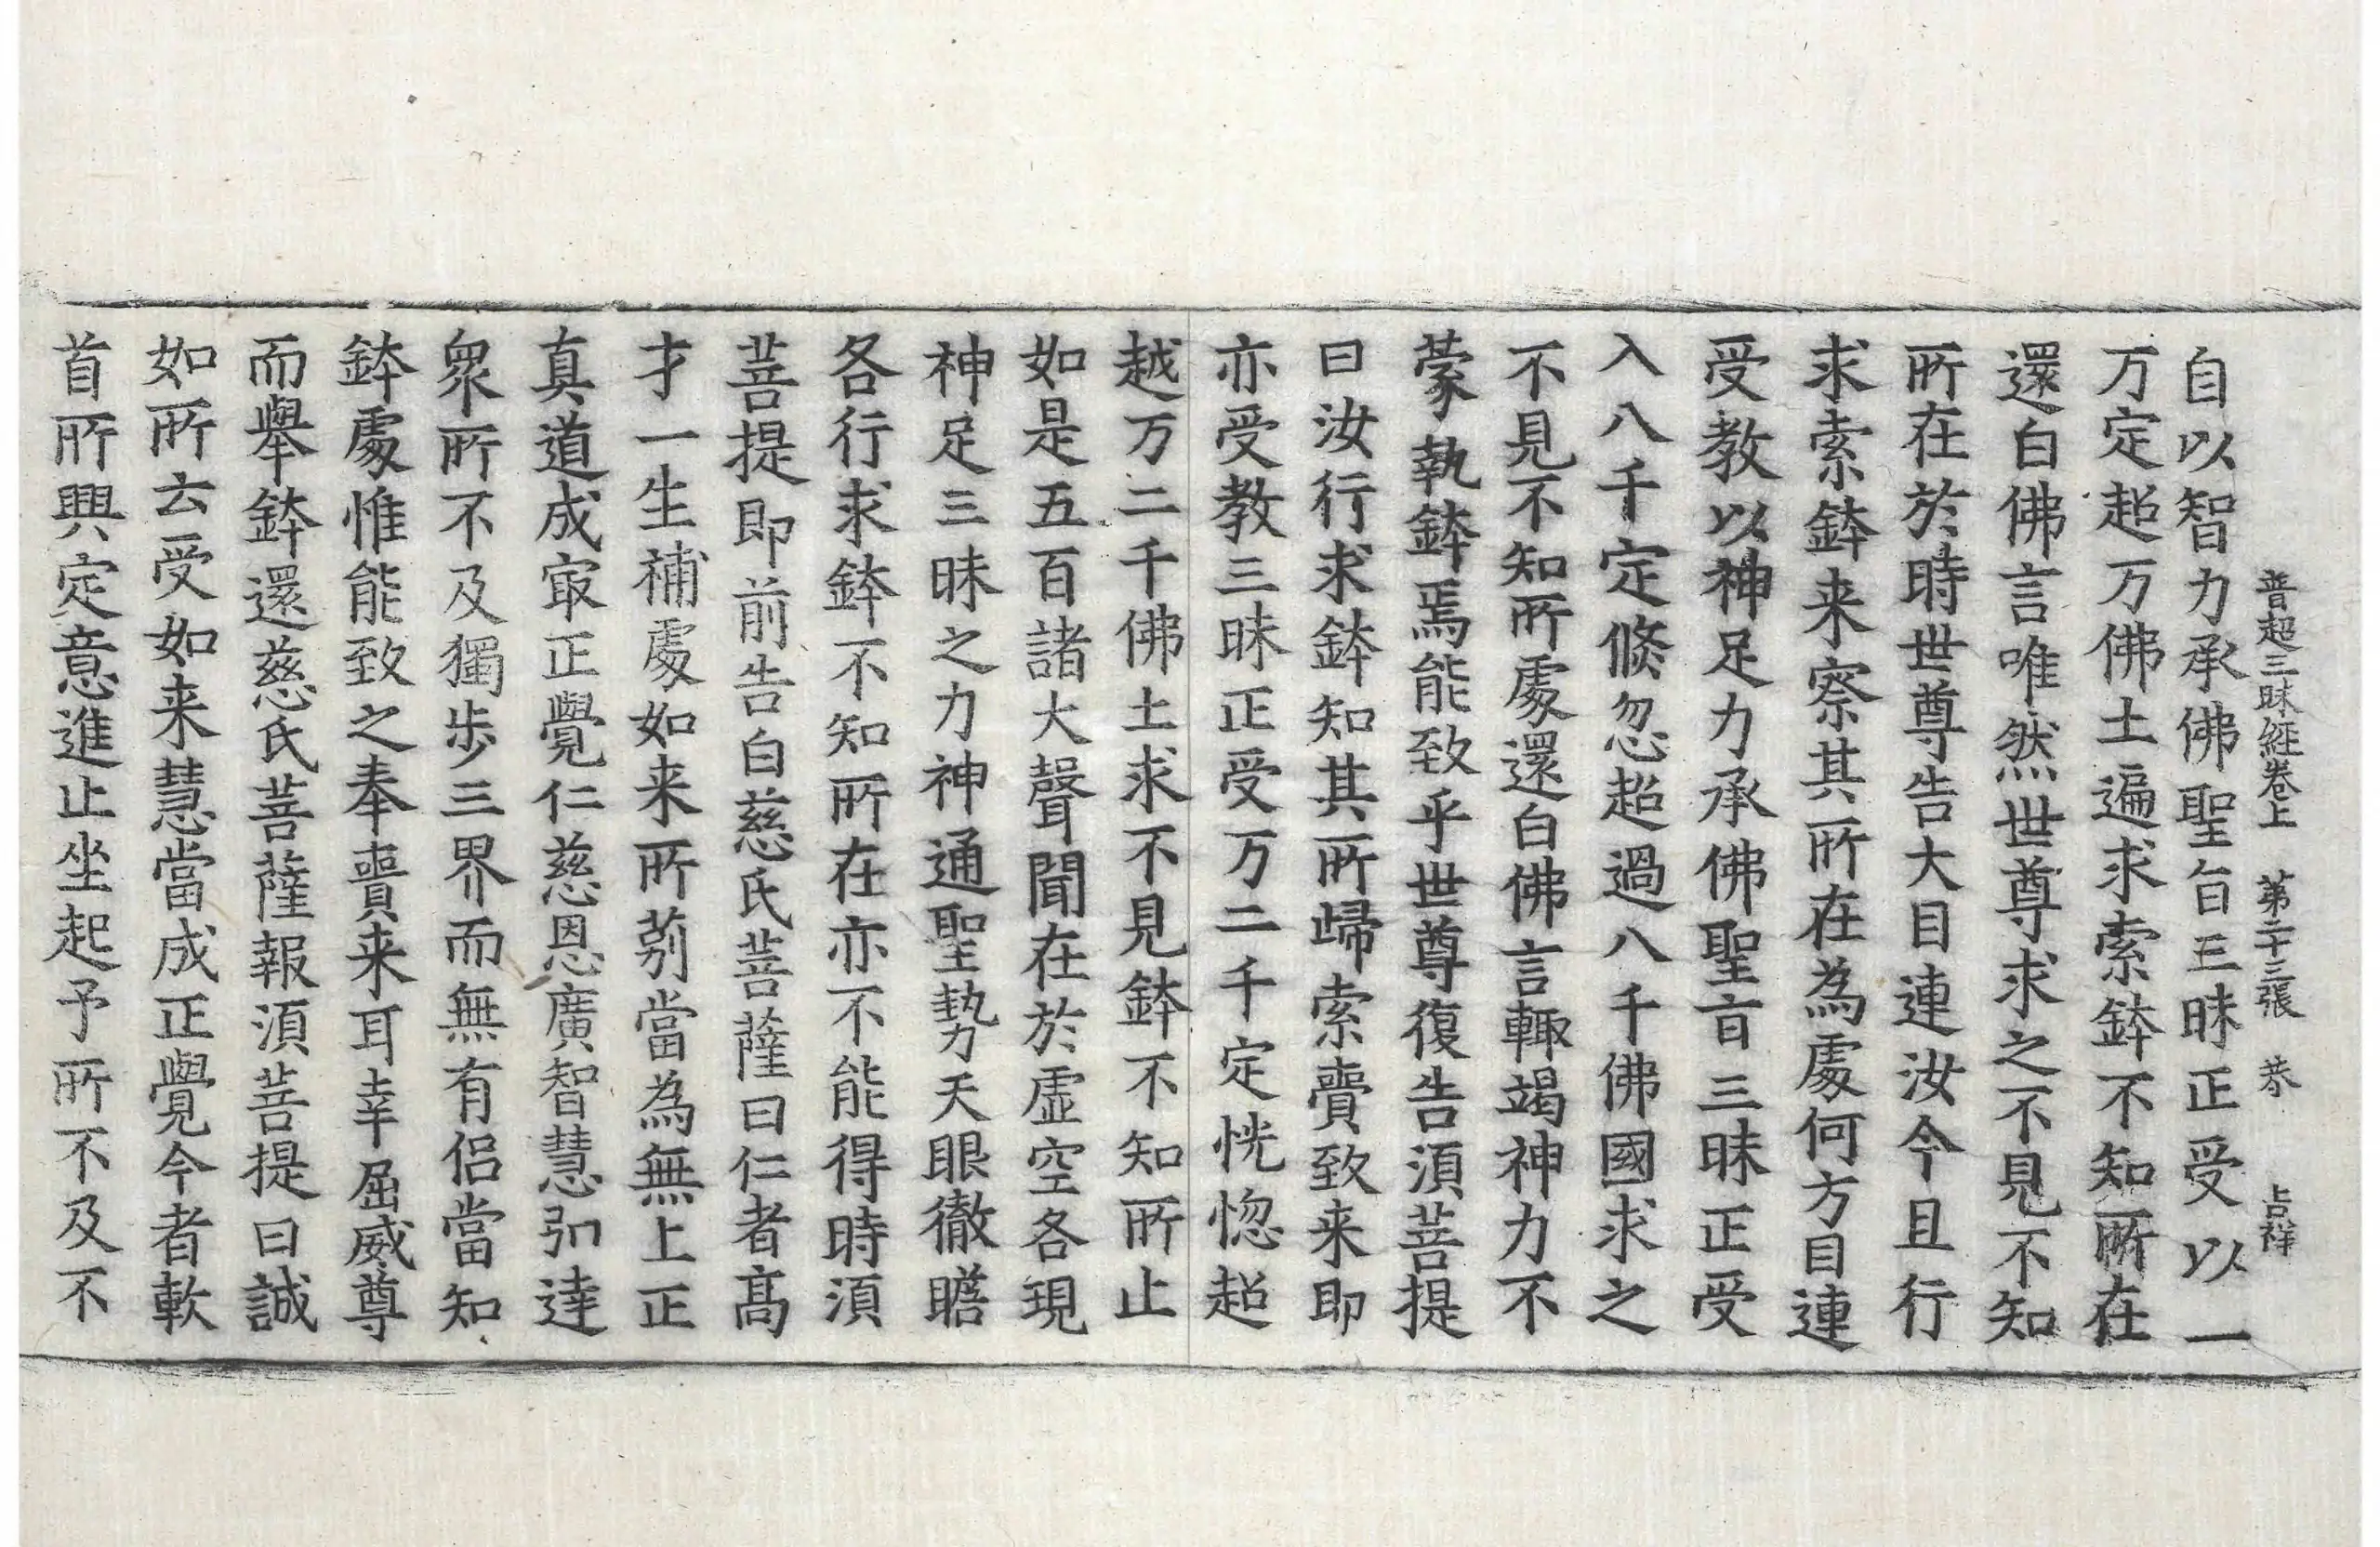 普超三昧經卷上 第二十三張 恭 吉祥
自以智力承佛聖旨三昧正受以一
万定超万佛土遍求索鉢不知所在
還白佛言唯然世尊求之不見不知
所在於時世尊告大目連汝今且行
求索鉢来察其所在為處何方目連
受教以神足力承佛聖旨三昧正受
入八千定倏忽超過八千佛國求之
不見不知所處還白佛言輙竭神力不
蒙執鉢焉能致乎世尊復告須菩提
曰汝行求鉢知其所歸索賷致来即
亦受教三昧正受万二千定恍惚超
越万二千佛土求不見鉢不知所止
如是五百諸大聲聞在於虛空各現
神足三昧之力神通聖勢天眼徹瞻
各行求鉢不知所在亦不能得時須
菩提即前告白慈氏菩薩曰仁者高
才一生補處如来所莂當為無上正
真道成冣正覺仁慈恩廣智慧弘達
衆所不及獨步三界而無有侶當知
鉢處惟能致之奉賷来耳幸屈威尊
而舉鉢還慈氏菩薩報須菩提曰誠
如所云受如来慧當成正覺今者軟
首所興定意進止坐起予所不及不